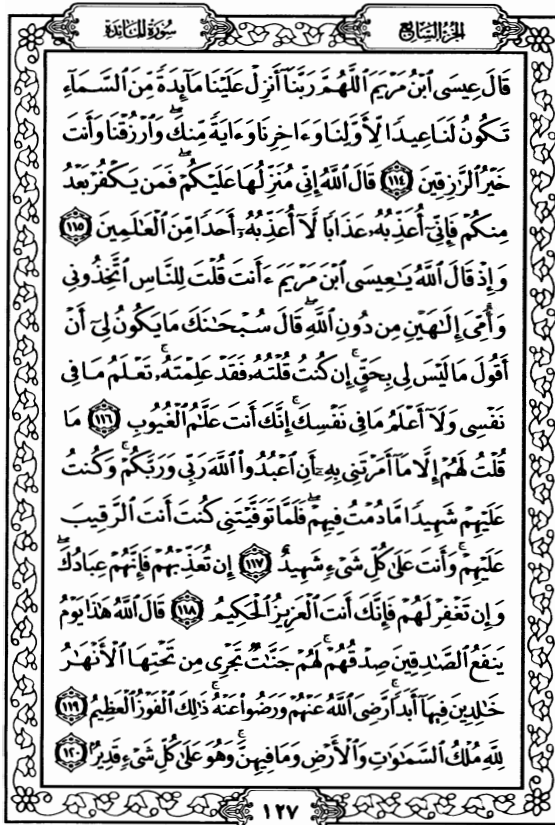 الجزء السابع
سورة المائدة
قَالَ عِيسَى ٱبْنُ مَرْيَمَ ٱللَّهُمَّ رَبَّنَآ أَنزِلْ عَلَيْنَا مَآئِدَةً مِّنَ ٱلسَّمَآءِ
تَكُونُ لَنَا عِيدًا لِّأَوَّلِنَا وَءَاخِرِنَا وَءَايَةً مِّنكَ ۖ وَٱرْزُقْنَا وَأَنتَ
خَيْرُ ٱلرَّٰزِقِينَ ﴿١١٤﴾ قَالَ ٱللَّهُ إِنِّى مُنَزِّلُهَا عَلَيْكُمْ ۖ فَمَن يَكْفُرْ بَعْدُ
مِنكُمْ فَإِنِّىٓ أُعَذِّبُهُۥ عَذَابًا لَّآ أُعَذِّبُهُۥٓ أَحَدًا مِّنَ ٱلْعَٰلَمِينَ ﴿١١٥﴾
وَإِذْ قَالَ ٱللَّهُ يَٰعِيسَى ٱبْنَ مَرْيَمَ ءَأَنتَ قُلْتَ لِلنَّاسِ ٱتَّخِذُونِى
وَأُمِّىَ إِلَٰهَيْنِ مِن دُونِ ٱللَّهِ ۖ قَالَ سُبْحَٰنَكَ مَا يَكُونُ لِىٓ أَنْ
أَقُولَ مَا لَيْسَ لِى بِحَقٍّ ۚ إِن كُنتُ قُلْتُهُۥ فَقَدْ عَلِمْتَهُۥ ۚ تَعْلَمُ مَا فِى
نَفْسِى وَلَآ أَعْلَمُ مَا فِى نَفْسِكَ ۚ إِنَّكَ أَنتَ عَلَّٰمُ ٱلْغُيُوبِ ﴿١١٦﴾ مَا
قُلْتُ لَهُمْ إِلَّا مَآ أَمَرْتَنِى بِهِۦٓ أَنِ ٱعْبُدُوا۟ ٱللَّهَ رَبِّى وَرَبَّكُمْ ۚ وَكُنتُ
عَلَيْهِمْ شَهِيدًا مَّا دُمْتُ فِيهِمْ ۖ فَلَمَّا تَوَفَّيْتَنِى كُنتَ أَنتَ ٱلرَّقِيبَ
عَلَيْهِمْ ۚ وَأَنتَ عَلَىٰ كُلِّ شَىْءٍ شَهِيدٌ ﴿١١٧﴾ إِن تُعَذِّبْهُمْ فَإِنَّهُمْ عِبَادُكَ ۖ
وَإِن تَغْفِرْ لَهُمْ فَإِنَّكَ أَنتَ ٱلْعَزِيزُ ٱلْحَكِيمُ ﴿١١٨﴾ قَالَ ٱللَّهُ هَٰذَا يَوْمُ
يَنفَعُ ٱلصَّٰدِقِينَ صِدْقُهُمْ ۚ لَهُمْ جَنَّٰتٌ تَجْرِى مِن تَحْتِهَا ٱلْأَنْهَٰرُ
خَٰلِدِينَ فِيهَآ أَبَدًا ۚ رَّضِىَ ٱللَّهُ عَنْهُمْ وَرَضُوا۟ عَنْهُ ۚ ذَٰلِكَ ٱلْفَوْزُ ٱلْعَظِيمُ ﴿١١٩﴾
لِلَّهِ مُلْكُ ٱلسَّمَٰوَٰتِ وَٱلْأَرْضِ وَمَا فِيهِنَّ ۚ وَهُوَ عَلَىٰ كُلِّ شَىْءٍ قَدِيرٌۢ ﴿١٢٠﴾
١٢٧